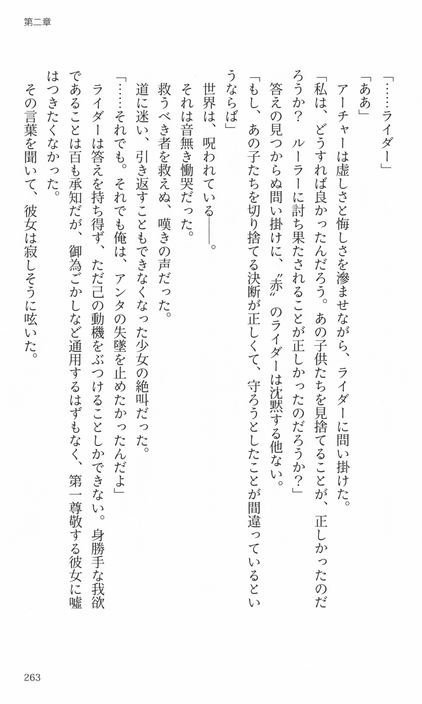 第二章
「……ライダー」
「ああ」
アーチャーは虚しさと悔しさを滲ませながら、ライダーに問い掛けた。
「私は、どうすれば良かったんだろう。あの子供たちを見捨てることが、正しかったのだ
ろうか？　ルーラーに討ち果たされることが正しかったのだろうか？」
答えの見つからぬ問い掛けに、〝赤〟のライダーは沈黙する他ない。
「もし、あの子たちを切り捨てる決断が正しくて、守ろうとしたことが間違っているとい
うならば」
世界は、呪われている――。
それは音無き慟哭だった。
救うべき者を救えぬ、嘆きの声だった。
道に迷い、引き返すこともできなくなった少女の絶叫だった。
「……それでも。それでも俺は、アンタの失墜を止めたかったんだよ」
ライダーは答えを持ち得ず、ただ己の動機をぶつけることしかできない。身勝手な我欲
であることは百も承知だが、御為ごかしなど通用するはずもなく、第一尊敬する彼女に嘘
はつきたくなかった。
その言葉を聞いて、彼女は寂しそうに呟いた。
263